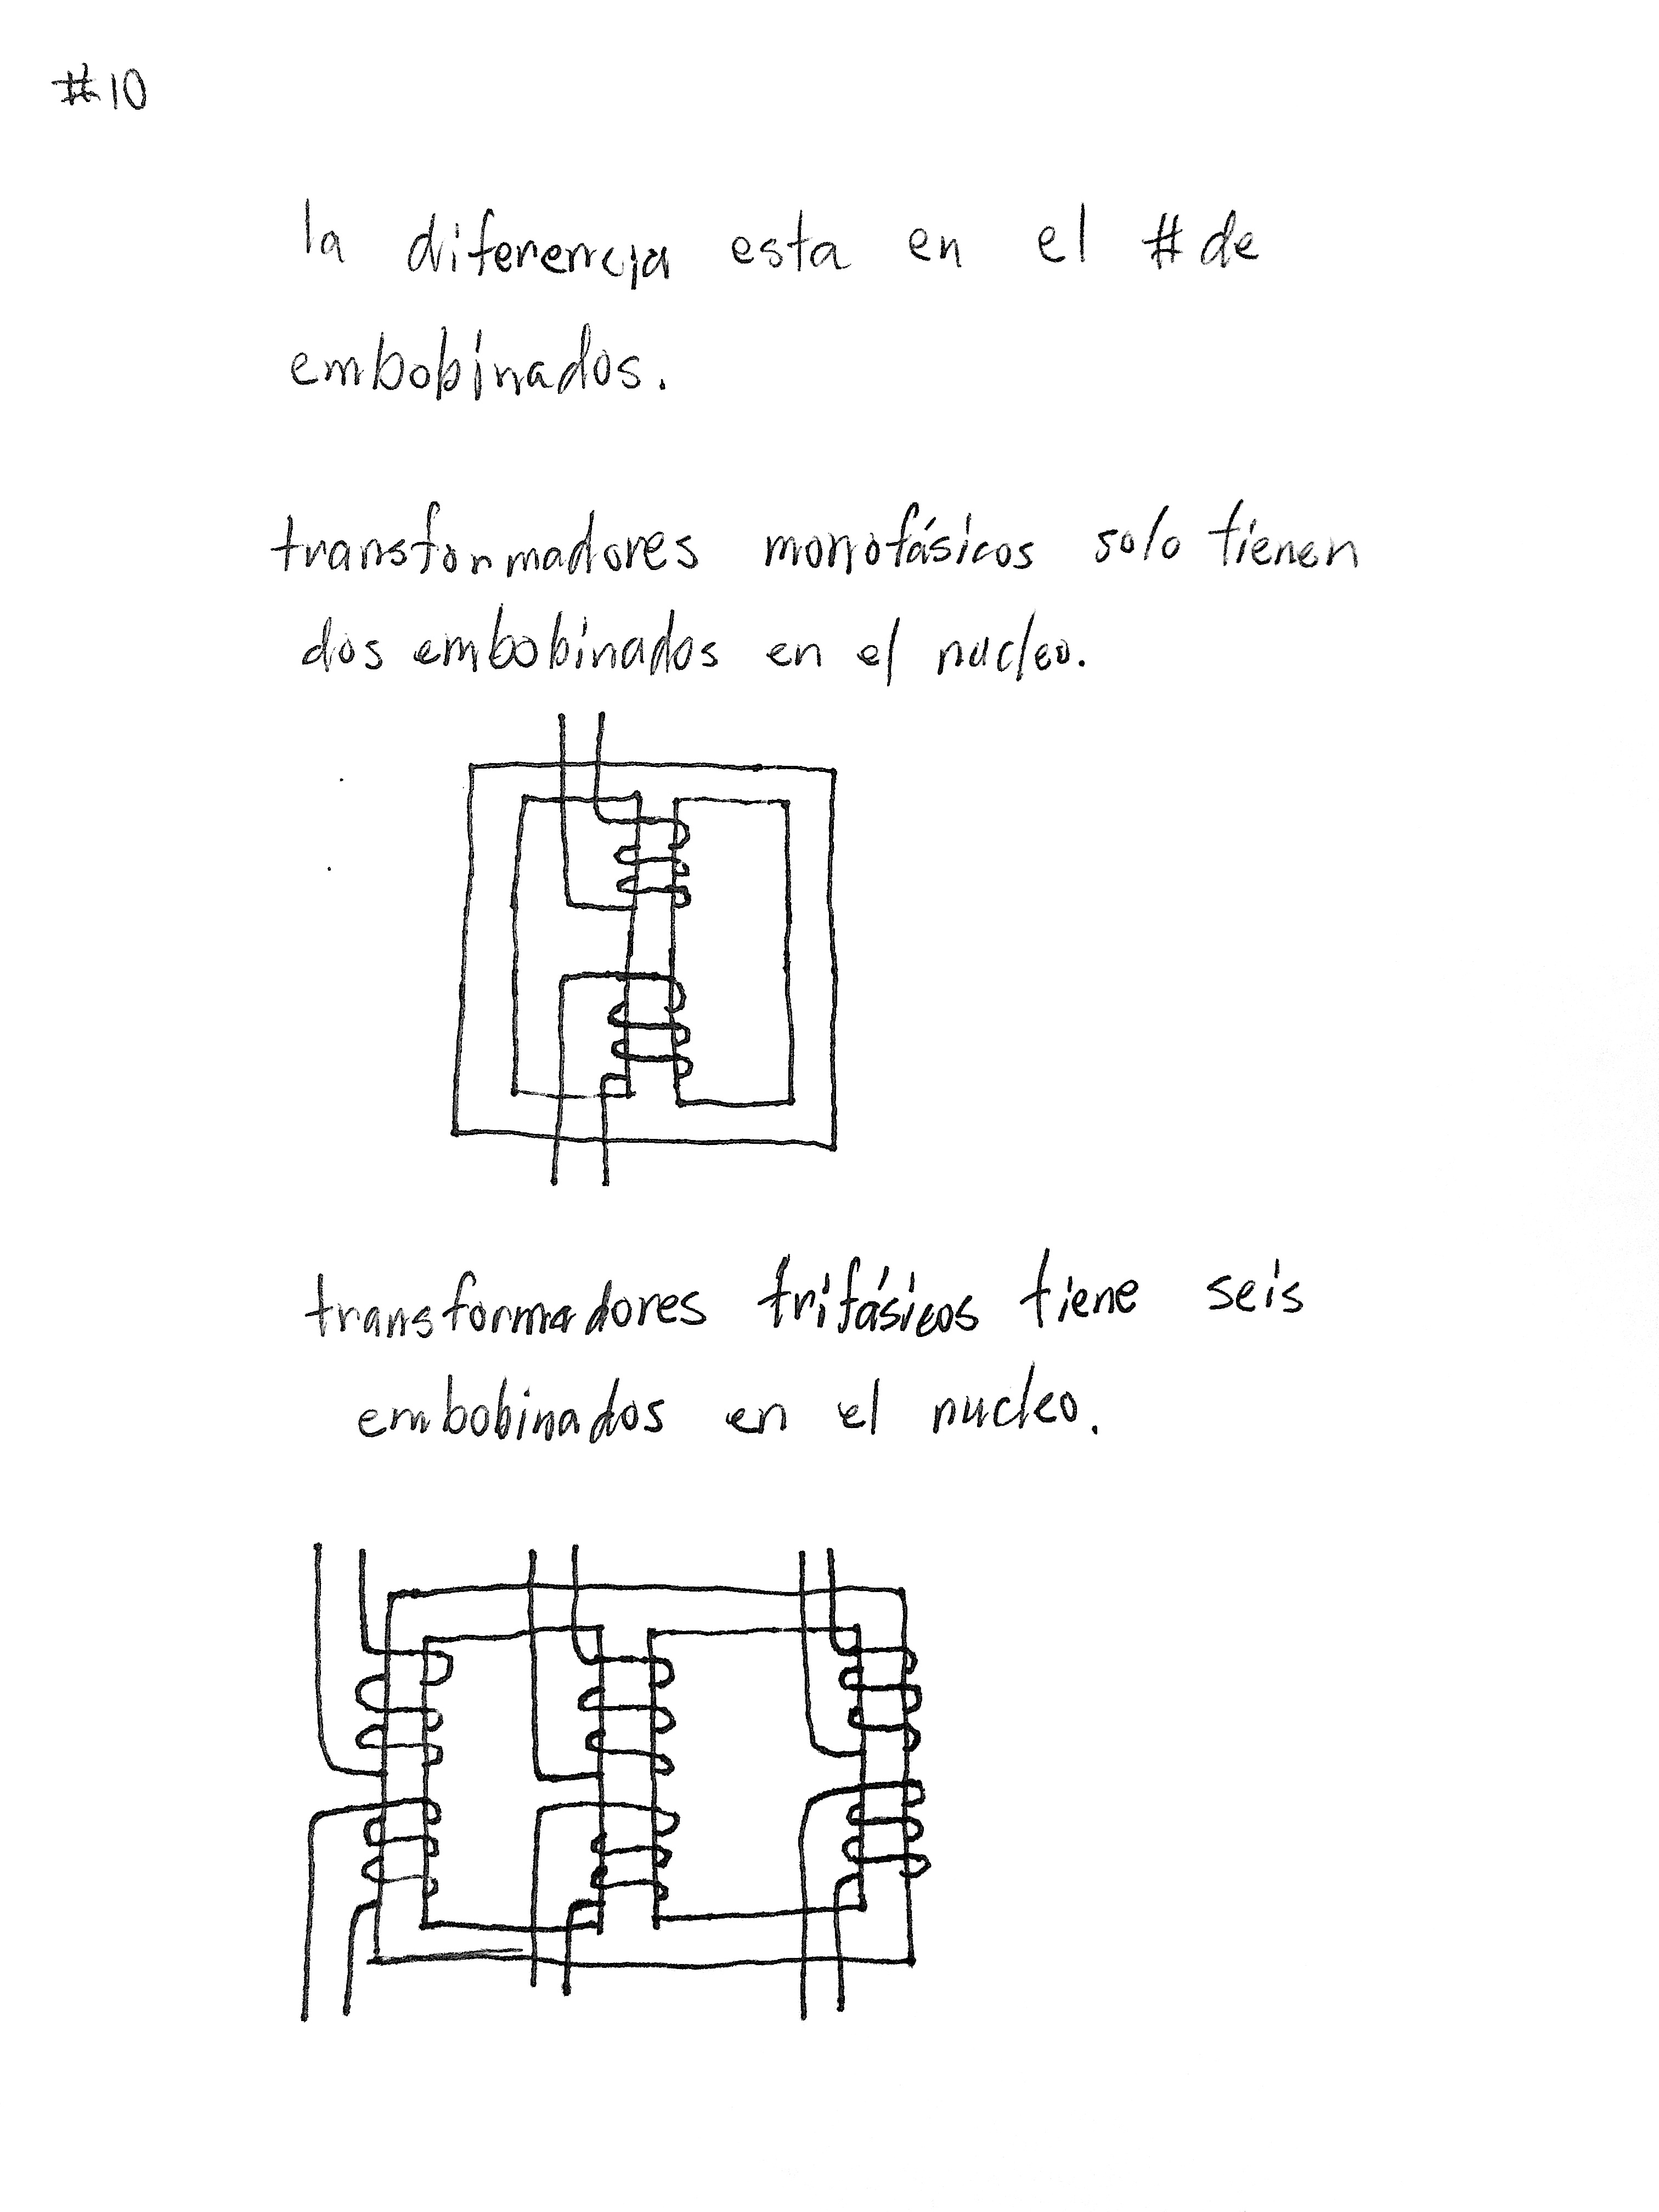 #10
la diferencia esta en el # de
embobinados.
transformadores monofásicos solo tienen
dos embobinados en el nucleo.
transformadores trifásicos tiene seis
embobinados en el nucleo.